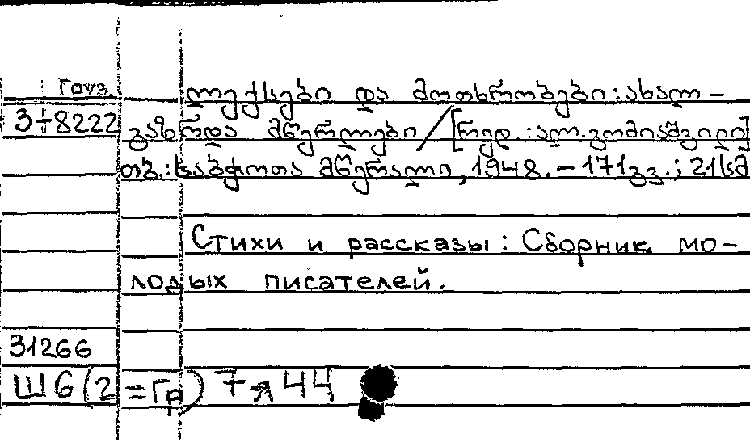 Груз. ლექსები და მოთხრობები: ახალ-
3-8222 გაზრდა მწერლები / [რედ.: ალ. გომიაშვილი]
თბ.: საბჭოთა მწერალი, 1948. - 171 გვ.; 21 სმ
Стихи и рассказы: Сборник мо-
лодых писателей.
31266
Ш6(2=Гр)7я44